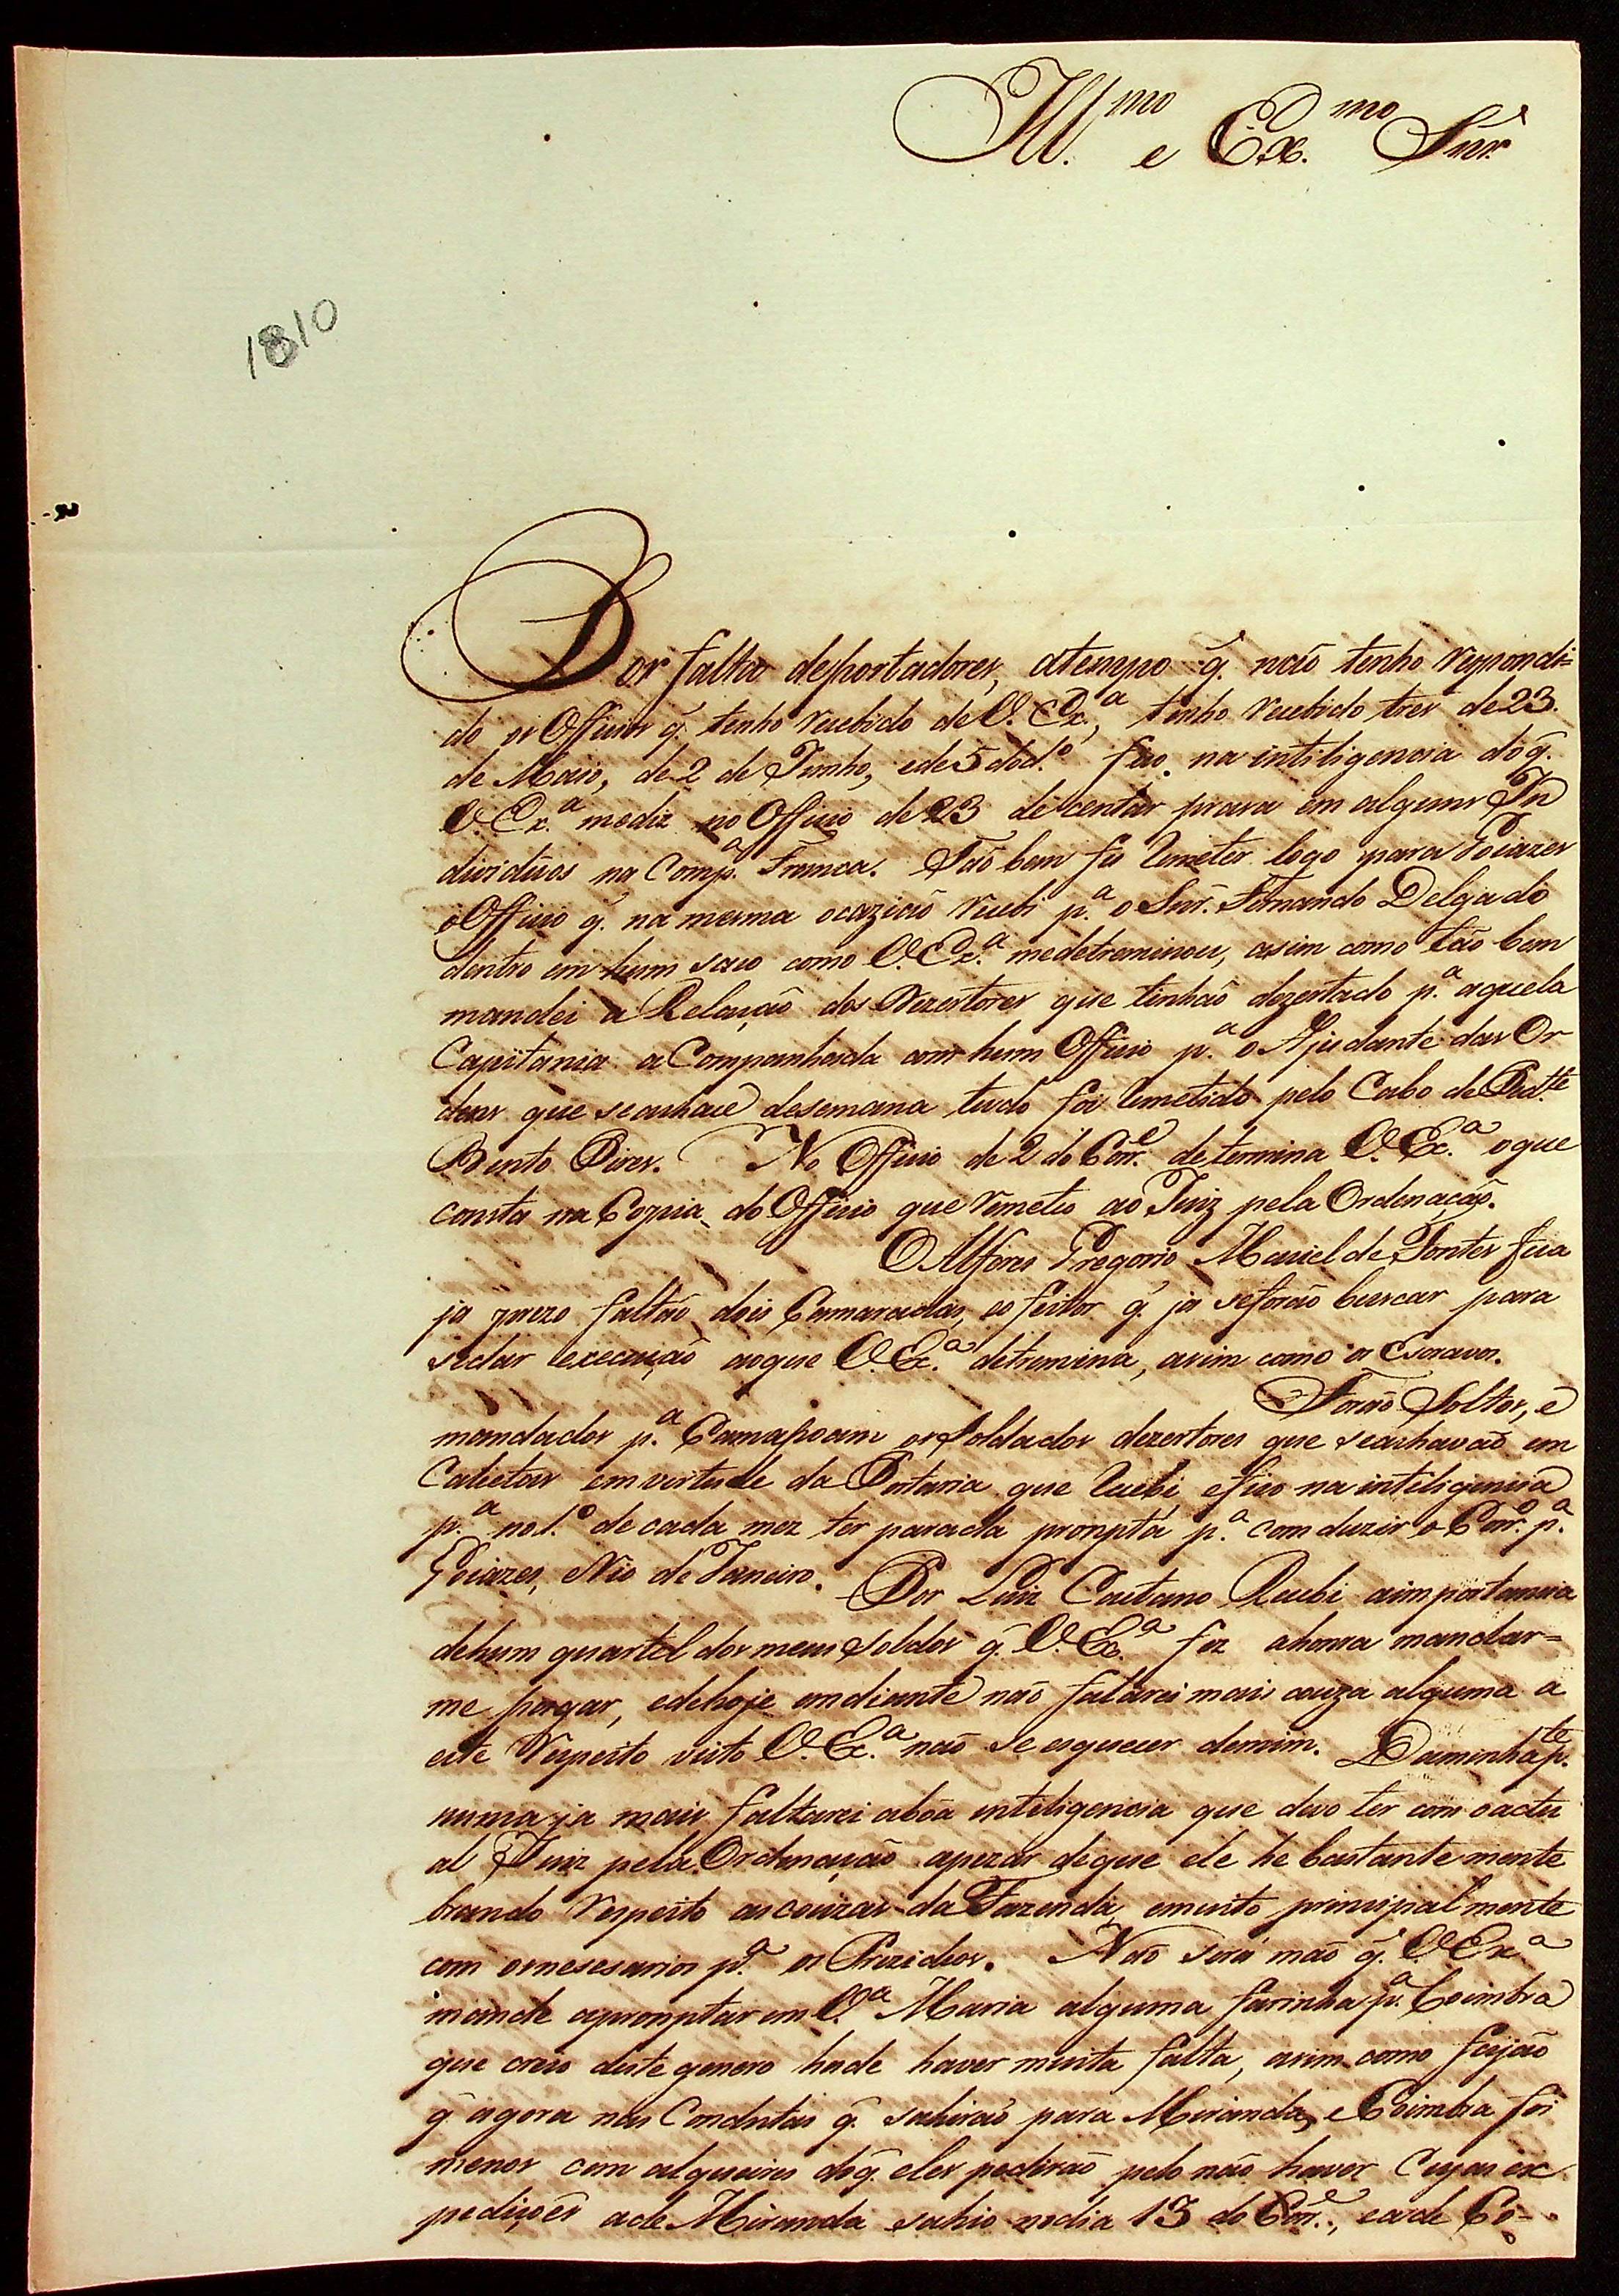 Ill.mo e Ex.mo Snr.
1810
Por falta desportadores, atempo q̃. naõ tenho respondi=
do os Officios q̃. tenho recebido de V. Ex.a, tenho recebido tres de 23.
de Maio, de 2 de Junho, ede 5 dod.o fico na intiligencia doq̃.
V. Ex.a mediz no Officio de 23 de centar prara em alguns In
dividuos na Comp.a Franca. Taõ bem fis remeter logo para Goiazes
o Officio q̃. na mesma ocaziaõ recebi p.a o Snr. Fernando Delgado
dentro em hum saco como V. Ex.a medetreminou, asim como taõ bem
mandei a Relaçaõ dos Dezertores que tinhaõ dezertado p.a aquela
Capitania aCompanhada com hum Officio p.a o Ajudante das Or
dens que seachace desemana, tudo foi remetido pelo Cabo de Ped.te
Bento Pires. No Officio de 2 do Corr.e determina V. Ex.a oque
consta na Copia do Officio que remeto ao Juiz pela Ordenaçaõ.
O Alferes Gregorio Maciel de Fontes fica
ja prezo faltaõ dois Camaradas, eo feitor q̃. ja seforaõ buscar para
sedar execuçaõ aoque V. Ex.a detremina, asim como os Escravos.
Foraõ Soltos, e
mandados p.a Camapoam os Soldados dezertores que seachavaõ em
Calcetas em virtude da Portaria que recebi, efico na inteligencia
p.a no 1.o de cada mez ter parada prompta p.a comduzir o Corr.o p.a
Goiazes, eRio de Janeiro. Por Luiz Caetano Recebi aimportancia
dehum quartel dos meus Soldos q̃. V. Ex.a fez ahonra mandar=
me pagar, edehoje emdiante naõ falarei mais couza alguma a
este respeito visto V. Ex.a naõ se esquecer demim. Daminha p.te
nunca ja mais faltarei aboa inteligencia que devo ter com oactu
al Juiz pela Ordenaçaõ apezar deque ele he bastantemente
brando respeito as couzas da Fazenda, emuito principalmente
com osnesesarios p.a os Prezidios. Naõ será máo q̃. V. Ex.a
mande apromptar em V.a Maria alguma farinha p.a Coimbra
que creio deste genero hade haver muita falta, asim como feijaõ
q̃ agora nas Condutas q̃. sahiraõ para Miranda, e Coimbra foi
menos cem alqueires doq̃. eles pediraõ pelo naõ haver Cujas ex
pediçoẽs ade Miranda sahio nodia 13 do Corr.e, eade Co=